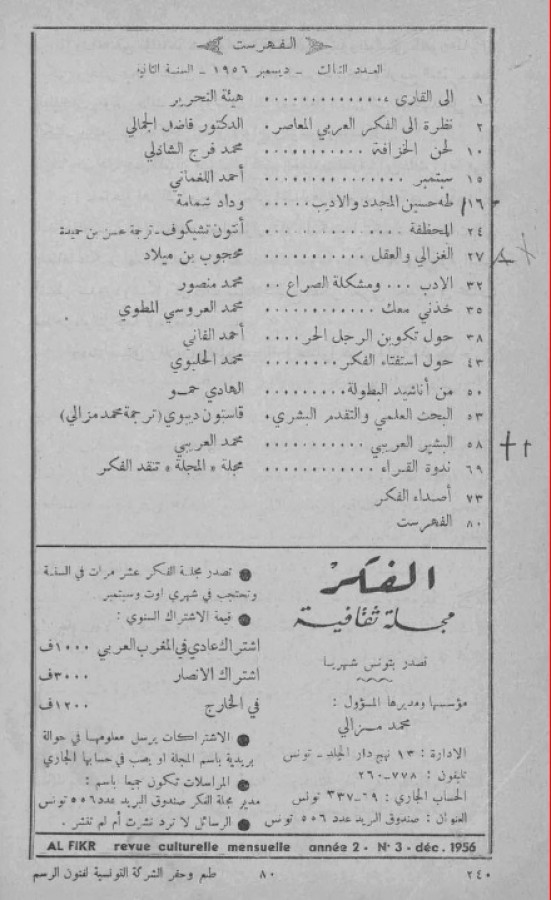 الفهرست
العدد الثالث - ديسمبر ١٩٥٦ - السنة الثانية
١ الى القارىء ............ هيئة التحرير
٢ نظرة الى الفكر العربي المعاصر . الدكتور فاضل الجمالي
١٠ لحن الخرافة ............ محمد فرج الشاذلي
١٥ سبتمبر ............ أحمد اللغماني
١٦ طه حسين المجدد والاديب ..... وداد شمامة
٢٤ المحظفة ............ أنتون تشيكوف - ترجمة حسن بن حميدة
٢٧ الغزالي والعقل ........ محجوب بن ميلاد
٣٢ الادب ... ومشكلة الصراع .. محمد منصور
٣٥ خذني معك ............ محمد العروسي المطوي
٣٨ حول تكوين الرجل الحر .... أحمد القاني
٤٣ حول استفتاء الفكر ........ محمد الحليوي
٥٠ من أناشيد البطولة ........ الهادي حمو
٥٣ البحث العلمي والتقدم البشري . (ترجمة محمد مزالي)
٥٨ البشير العريبي ............ محمد العريبي
٦٩ ندوة القراء ............ مجلة « المجلة » تنقد الفكر
٧٣ أصداء الفكر
٨٠ الفهرست
الفكر
مجلة ثقافية
تصدر بتونس شهريا
مؤسسها ومديرها المسؤول :
محمد مزالي
الادارة : ١٣ نهج دار الجلد - تونس
تليفون : ٧٧٨-٢٦٠
الحساب الجاري : ٦٩-٣٣٧ تونس
العنوان : صندوق البريد عدد ٥٥٦ تونس
● تصدر مجلة الفكر عشر مرات في السنة
وتحتجب في شهري اوت وسبتمبر
● قيمة الاشتراك السنوي :
اشتراك عادي في المغرب العربي ١٠٠٠ ف
اشتراك الانصار ٣٠٠٠ ف
في الخارج ١٢٠٠ ف
● الاشتراكات يرسل معلومها في حوالة
بريدية باسم المجلة او يصب في حسابها الجاري
● المراسلات تكون جميعا باسم :
مدير مجلة الفكر صندوق البريد عدد ٥٥٦ تونس
● الرسائل لا ترد نشرت أم لم تنشر .
AL FiKR revue culturelle mensuelle année 2 - N° 3 - déc. 1956
٢٤٠ ٨٠ طبع وحفر الشركة التونسية لفنون الرسم